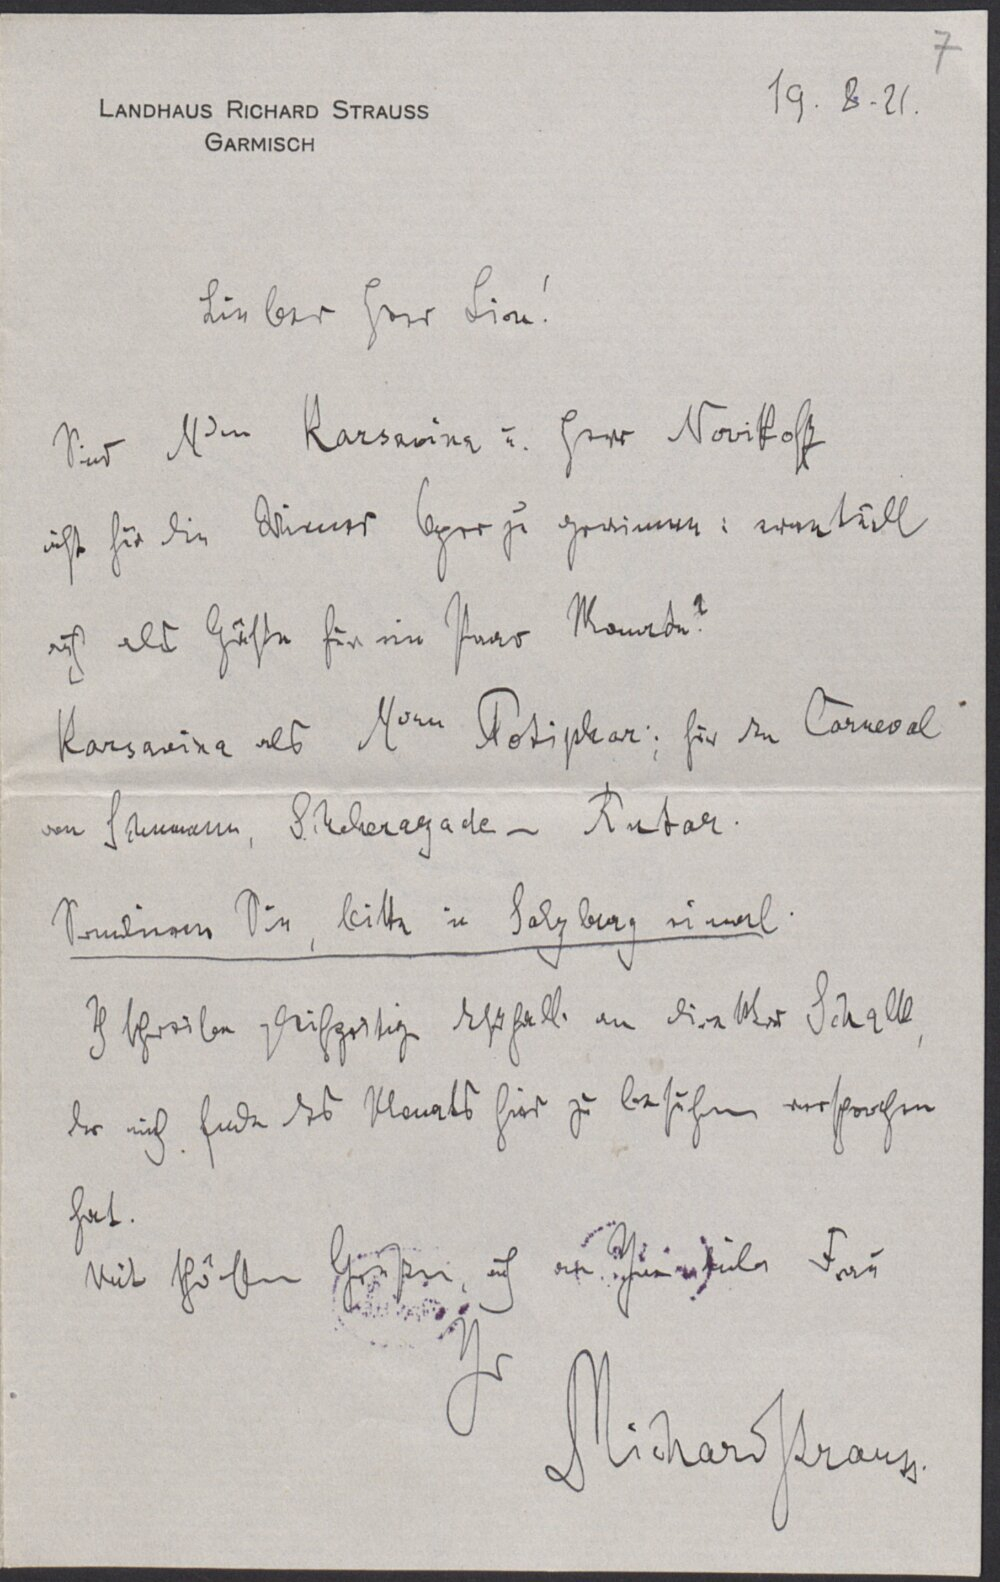 7
19. 8. 21.
LANDHAUS RICHARD STRAUSS
GARMISCH
Lieber Herr Lion!
Sind Mdm Karsavina u. Herr Novikoff
nicht für die Wiener Oper zu gewinnen: eventuell
auch als Gäste für ein Paar Monate?
Karsavina als Mdm Potiphar; für den Carneval
von Schumann, Scheherazade –
Sondieren Sie, bitte in Salzburg einmal.
Ich schreibe gleichzeitig deshalb an Direktor Schalk,
der mich Ende des Monats hier zu besuchen versprochen
hat.
Mit schönsten Grüßen, auch an Frau
Ihr
Richard Strauss.